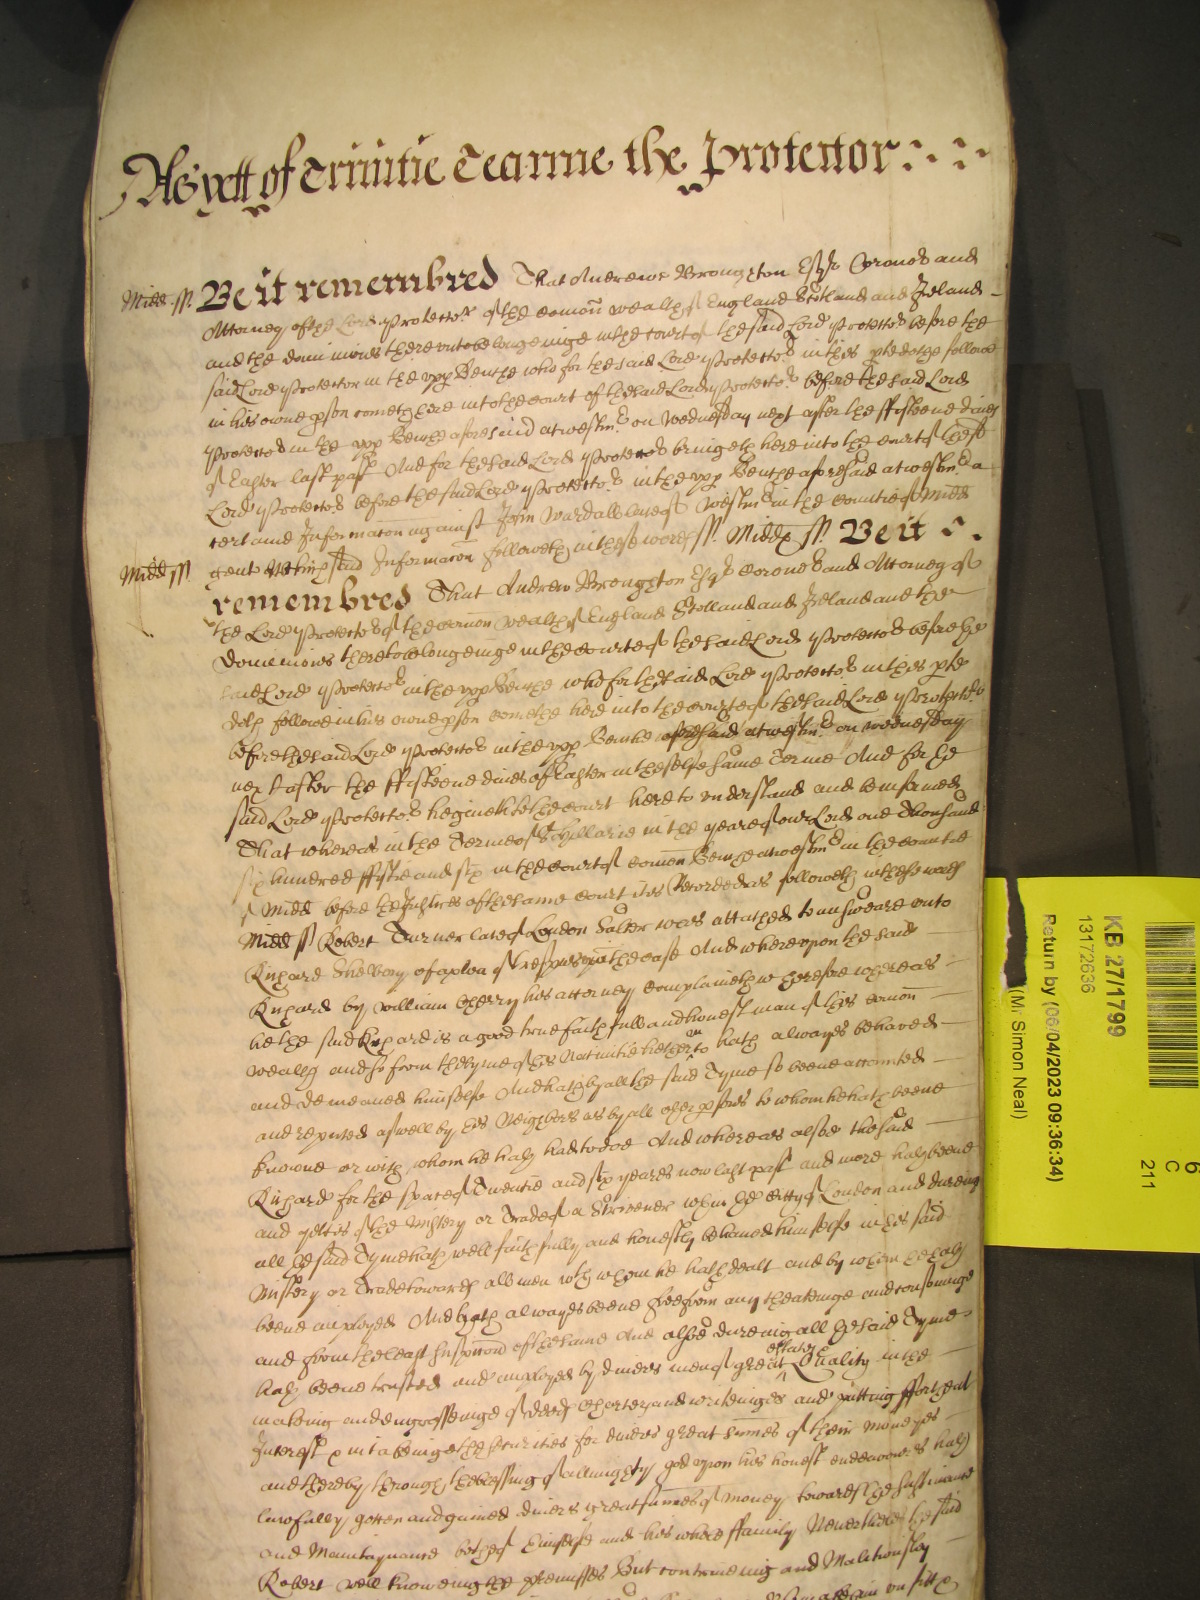 As yett of Trinitie Tearme the Protector
Midd ss. Be it remembred That Andrewe Broughton Esqr Coronor and
Attorney of the Lord Protector of the comon wealth of England Scotland and Ireland
and the dominions thereunto belonginge in the court of the said Lord Protector before the
said Lord Protector in the upp Benche who for the said Lord Protector in this pte doth followe
in his owne pson cometh here into the court of the said Lord Protector before the said Lord
Protector in the upp Benche aforesaid at westm on wednesday next after the ffifteene daies
of Easter last past And for the said Lord Protector bringeth here into the court of the said
Lord Protector before the said Lord Protector in the upp Benche aforesaid at westm a
certaine Informacon against John Wardall late of westm in the countie of Midd
gent which said Informacon followeth in these words ss. Midd ss. Be it
Midd ss
remembred That Andrew Broughton Esqr Coronor and Attorney of
the Lord Protector of the comon wealth of England Scotland and Ireland and the
Dominions thereto belonginge in the court of the said Lord Protector before the
said Lord Protector in the upp Benche who for the said Lord Protector in this pte
doth followe in his owne pson cometh here into the court of the said Lord Protector
before the said Lord Protector in the upp Benche aforesaid at westm on wednesday
next after the ffifteene daies of Easter in the selfe same Terme And for the
said Lord Protector he giveth the court here to understand and be informed
That whereas in the Terme of St Hillarie in the yeare of our Lord one Thousand
six hundred ffiftie and six in the court of comon Benche at westm in the countie
of Midd before the Justices of the same court it is Recorded as followeth in these words
Midd ss Robert Turner late of London Salter was attached to answeare unto
Richard Shelbury of a plea of trespas upon the case And whereupon the said
Richard by William Cherry his attorney complaineth wherefore whereas
he the said Richard is a good true faithfull and honest man of this comon
wealth and so from the tyme of his Nativitie hetherto hath alwayes behaved
and demeaned himselfe And hath by all the said Tyme so beene accounted
and reputed aswell by his Neighbors as by all other psons to whom he hath beene
knowne or with whom he hath had to doe And whereas alsoe the said
Richard for the space of Twentie and six yeares now last past and more hath beene
and yett is of the Mistery or Trade of a Scrivener within the Citty of London and dureing
all the said Tyme hath well faithfully and honestly behaved himselfe in his said
Mistery or Trade towards all men with whom he hath dealt and by whom he hath
beene imployed And hath alwayes beene free from any cheatinge and cousoninge
and from the least suspicon of the same And alsoe dureing all the said Tyme
hath beene trusted and imployed by divers men of great estate Quality in the
makeing and engrosseinge of deeds charters and writeings and putting fforth at
Interest takeinge the securities for divers great summes of their moneyes
and thereby through the blessing of allmighty god upon his honest endeavours hath
lawfully gotten and gained divers great summes of money towards the sustinance
and Maintaynance both of himselfe and his whole ffamily Neverthelesse the said
Robert well knoweing the premisses But contriveing and Maliciously
6
C
211
KB 27/1799
13172636
Return by (06/04/2023 09:36:34)
(Mr Simon Neal)